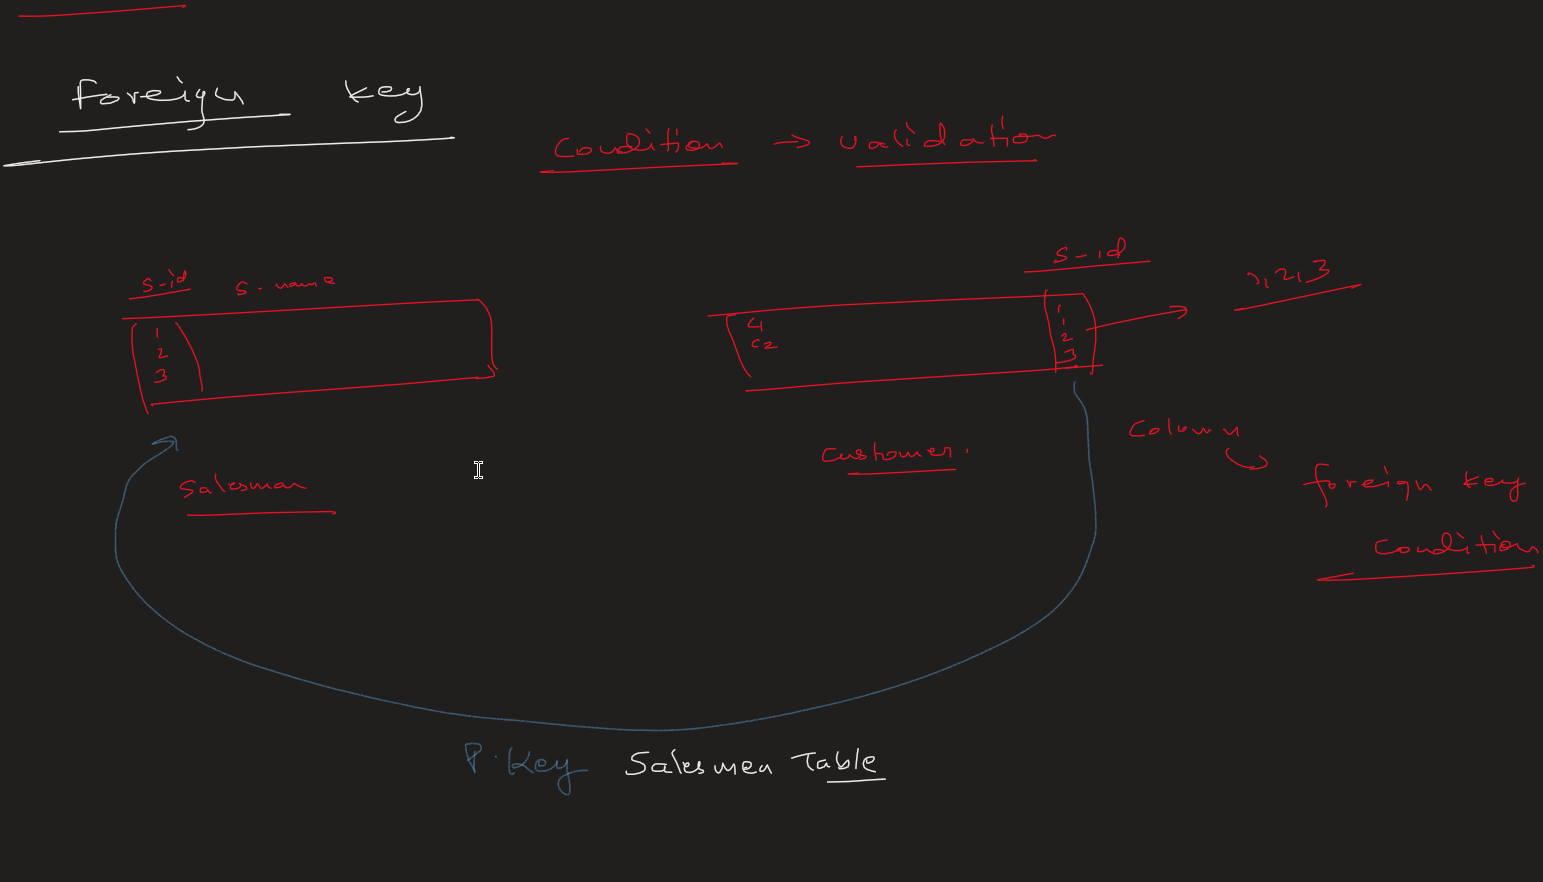 foreign key
Condition → validation
s-id s-name
1
2
3
Salesman
s-id
C1
C2
1
1
2
3
1,2,3
Customer.
Column
foreign key
Condition
P.Key Salesmen Table